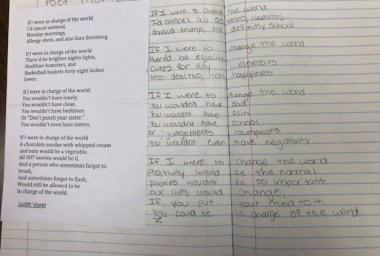 Poet
If I were in charge of the world
I'd cancel oatmeal,
Monday mornings,
Allergy shots, and also Sara Steinberg.
If I were in charge of the world
There'd be brighter nights lights,
Healthier hamsters, and
Basketball baskets forty eight inches
lower.
If I were in charge of the world
You wouldn't have lonely.
You wouldn't have clean.
You wouldn't have bedtimes.
Or "Don't punch your sister."
You wouldn't even have sisters.
If I were in charge of the world
A chocolate sundae with whipped cream
and nuts would be a vegetable.
All 007 movies would be G,
And a person who sometimes forgot to
brush,
And sometimes forgot to flush,
Would still be allowed to be
In charge of the world.
Judith Viorst
If I were to change the world
I'd cancel all
donald trump, and
If I were to change the world
there'd be
cures for all illnesses
less deaths, more happiness
If I were to change the world
You wouldn't have sad
You wouldn't have pain
You wouldn't have school
or judgements assumptions
You wouldn't even have negativity
If I were to change the world
positivity would be the normal
phones wouldn't be so important
our lives would change,
If you put your mind to it
You could be in charge of the world